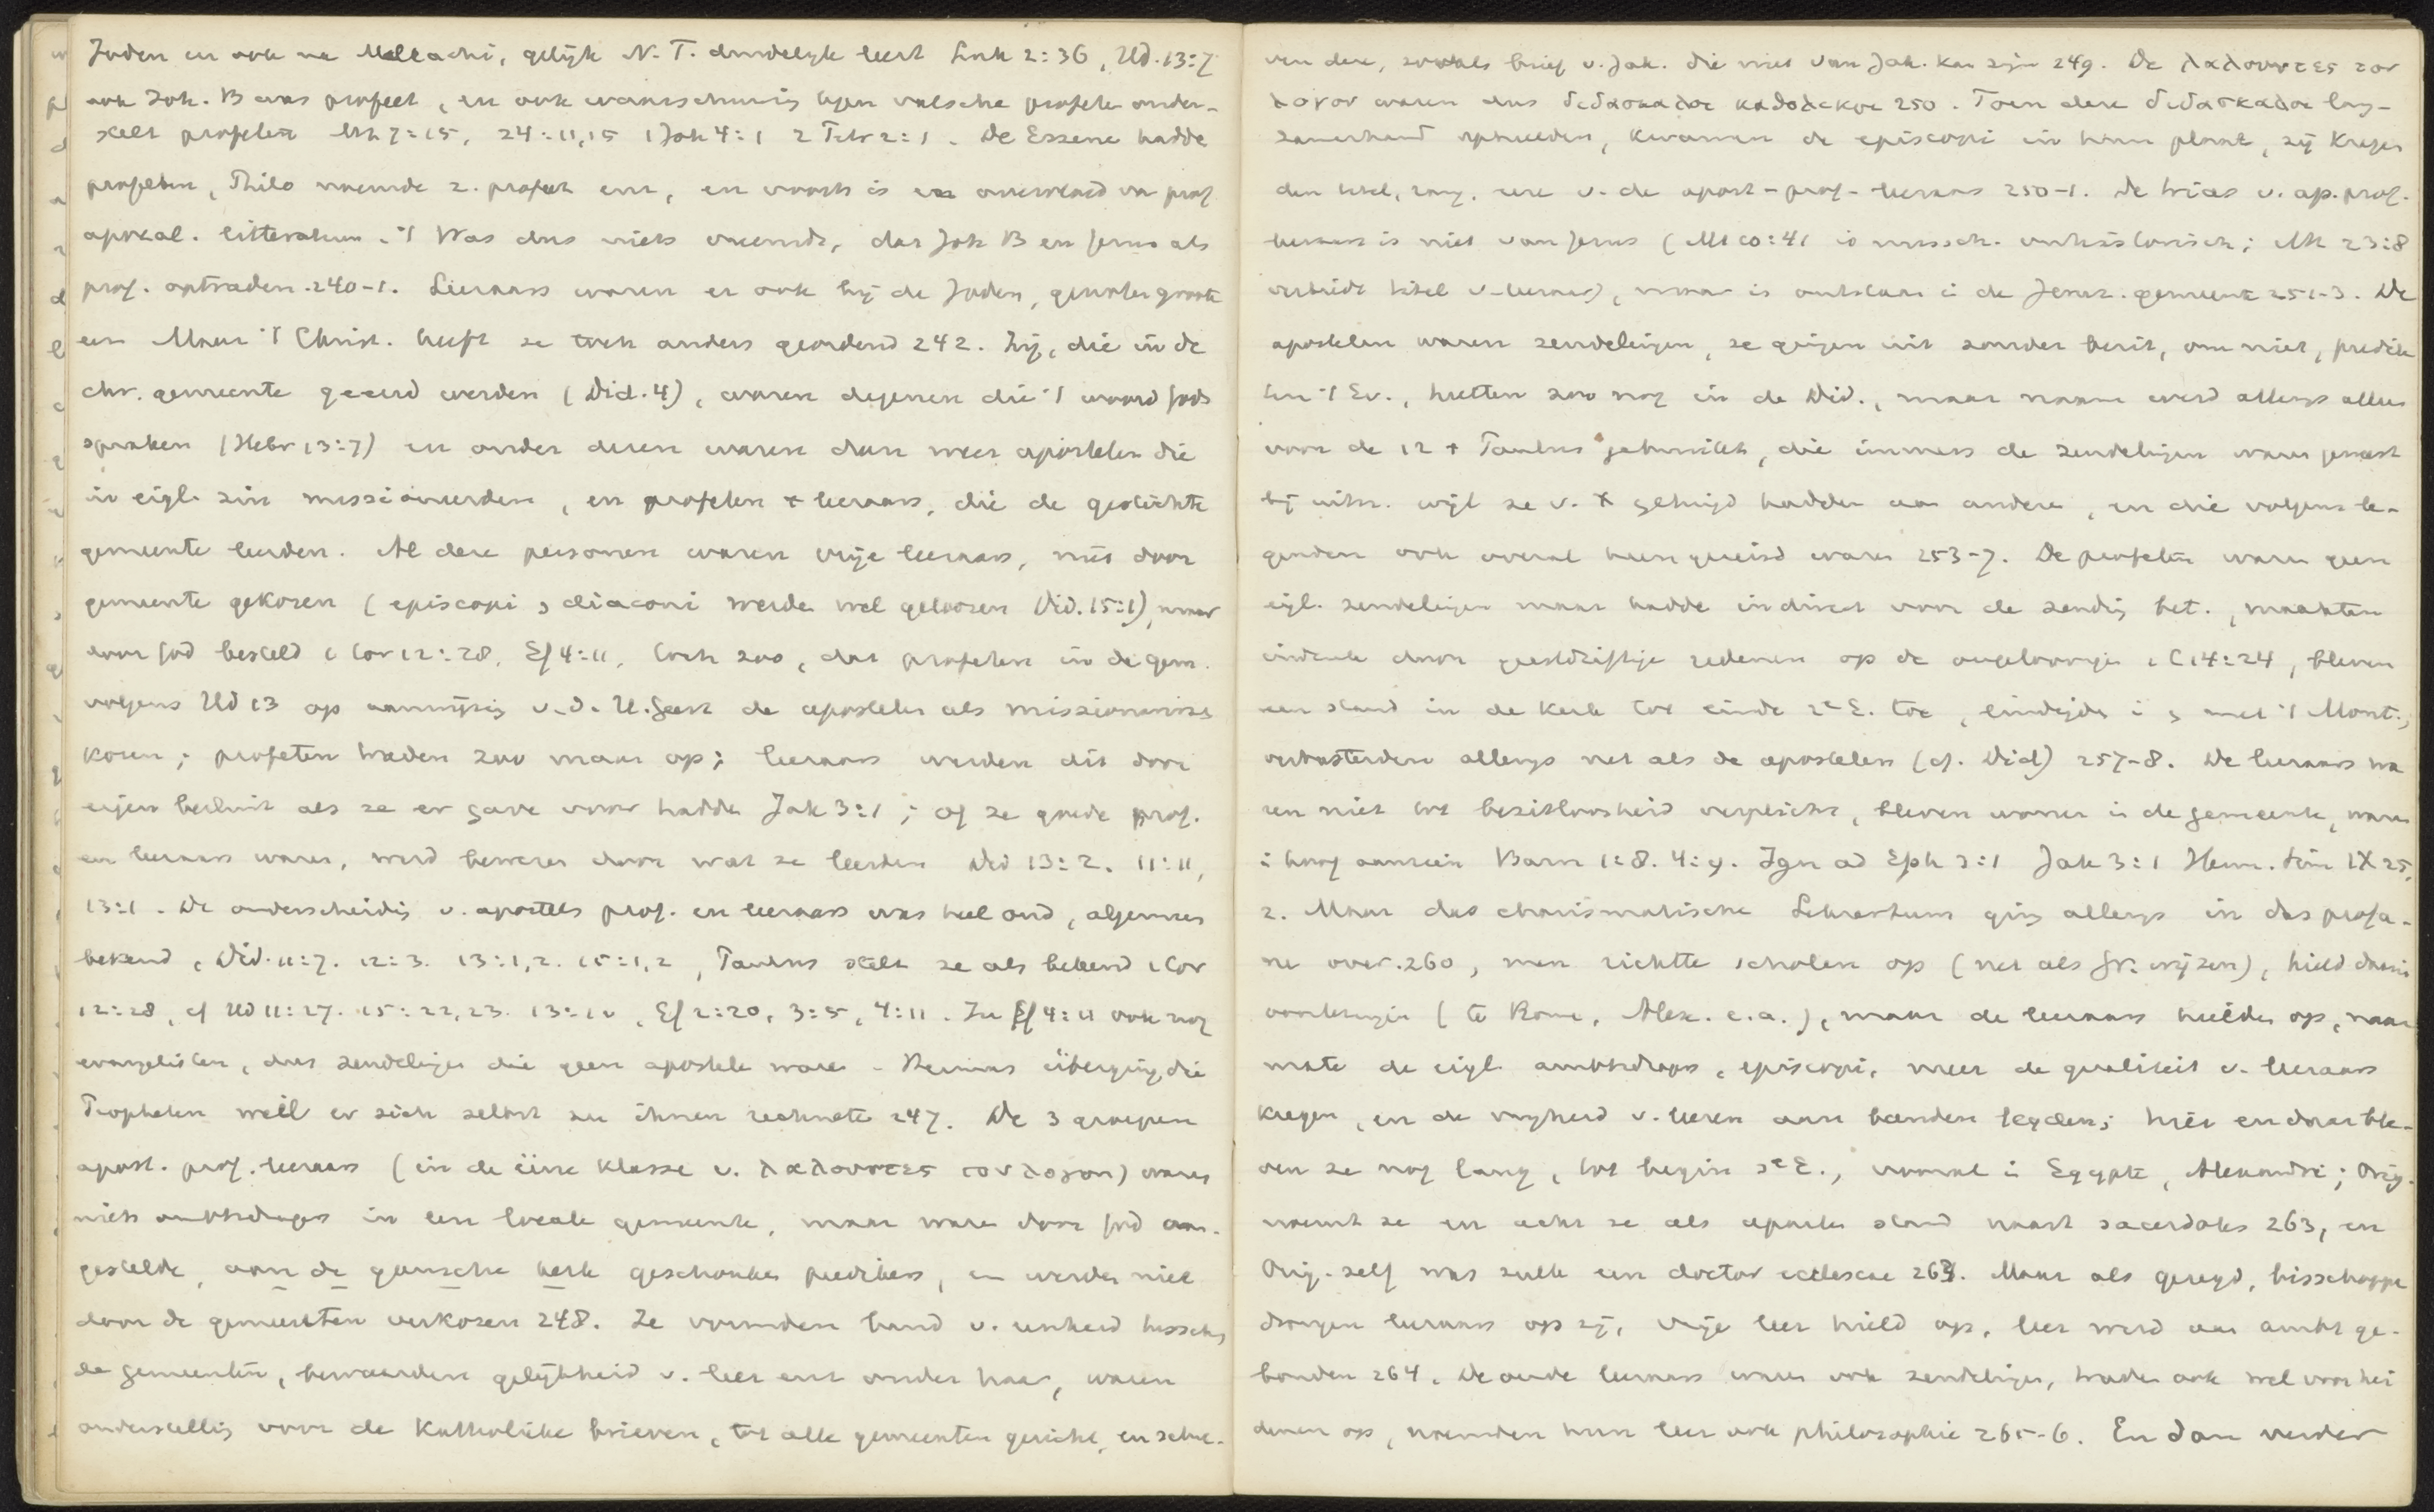 Joden en ook na Malleachi, gelijk N. T. duidelijk leert Luk 2:36, Hd. 13:7
ook Joh. B was profeet, en ook waarschuwing tegen valsche profeten onder-
stelt profeten Mt 7:15, 24:11,15 1 Joh 4:1 2 Petr 2:1. De Essene hadde
profeten, Philo noemde z. profeet enz, en voorts is er overvloed van prof
apokal. litteratuur. 't Was dus niets vreemds, dat Joh B en Jezus als
prof. optraden. 240-1. Leeraars waren er ook bij de Joden, genoten groote
eer. Maar 't Christ. heeft ze toch anders geordend 242. Zij, die in de
chr. gemeente geëerd werden (Did. 4), waren degenen die 't woord Gods
spraken (Hebr 13:7) en onder deren waren dan weer apostelen die
in eigl. zin missioneerden, en profeten + leeraars, die de gestichte
gemeente leerden. Al deze personen waren vrije leeraars, niet door
gemeente gekozen (episcopi, diaconi werde wel gekozen Did. 15:1), maar
door God besteld 1 Cor 12:28, Ef 4:11, toch zoo, dat profeten in de gem.
volgens Hd 13 op aanwijzing v. d. H. Geest de apostelen als missionaris
kozen; profeten traden zoo maar op; leeraars werden dit door
eigen besluit als ze er gave voor hadde Jak 3:1; of ze goede prof.
en leeraars waren, werd bewezen door wat ze leerden Did 13:2. 11:11,
13:1. De onderscheiding v. apostels prof. en leeraars was heel oud, algemeen
bekend, Did. 11:7. 12:3. 13:1,2. 15:1,2, Paulus stelt ze als bekend 1 Cor
12:28, cf Hd 11:27. 15:22,23. 13:1v, Ef 2:20, 3:5, 4:11. In Ef 4:11 ook nog
evangelisten, dus zendelinge die geen apostele ware. Hermas überging die
Propheten weil er sich selbst zu ihnen rechnete 247. De 3 groepen
apost. prof. leeraars (in de eene klasse v. λαλουντες τον λογον) waren
niets ambtsdragers in een locale gemeente, maar ware door God aan-
gestelde, aan de gansche kerk geschonken predikers, en werden niet
door de gemeenten verkozen 248. Ze vormden band v. eenheid tusschen
de gemeenten, bewaarden gelijkheid v. leer enz onder haar, waren
onderstelling voor de Katholieke brieven, tot alle gemeenten gericht, en schre-
ven deze, zooals brief v. Jak. die niet van Jak. kan zijn 249. De λαλουντες τον
λογον waren dus διδασκαλοι καθολικοι 250. Toen deze διδασκαλοι lang-
zamerhand ophielden, kwamen de episcopi in hun plaats, zij kregen
den titel, rang, eere v. de apost-prof-leeraars 250-1. De trias v. ap. prof.
leeraars is niet van Jezus (Mt 10:41 is misch. onhistorisch; Mt 23:8
verbiedt titel v. leeraar), maar is ontstaan i de Jeruz. gemeente 251-3. De
apostelen waren zendelingen, ze gingen uit zonder bezit, om niet, predik
ten 't Ev., heetten zoo nog in de Did., maar naam werd allengs alleen
voor de 12 + Paulus gebruikt, die immers de zendelingen waren geweest
bij uitn. wijl ze v. X getuigd hadden aan andere, en die volgens le-
genden ook overal heen gereisd waren 253-7. De profeten waren geen
eigl. zendelingen maar hadde indirect voor de zending bet., maakten
indruk door geestdriftige redenen op de ongeloovigen 1 C 14:24, bleven
een stand in de kerk tot einde 2e E. toe, eindigde i en met 't Mont.;
verbasterden allengs net als de apostelen (cf. Did) 257-8. De leeraars wa
ren niet tot bezitloosheid verplicht, bleven wonen in de gemeente, waren
i hoog aanzien Barn 1:8. 4:9. Ign ad Eph 3:1 Jak 3:1 Herm. sim IX 25,
2. Maar das charismatische Lehrertum ging allengs in das profa-
ne over. 260, men richtte scholen op (net als Gr. wijzen), hield daarin
voorlezingen (te Rome, Alex. e.a.), maar de leeraars hielden op, naar
mate de eigl. ambtsdragers, episcopi, meer de qualiteit v. leeraars
kregen, en de vrijheid v. leeren aan banden legden; hier en daar ble-
ven ze nog lang, tot begin 3e E., vooral i Egypte, Alexandrië; Orig.
noemt ze en acht ze als aparte stand naast sacerdotes 263, en
Orig. zelf was zulk een doctor ecclesiae 263. Maar als gezegd, bisschoppe
drongen leeraars op zij, vrije leer hield op, leer werd aan ambt ge-
bonden 264. De oude leeraars ware ook zendelinge, traden ook wel voor hei
denen op, noemden hun leer ook philosophie 265-6. En dan verder